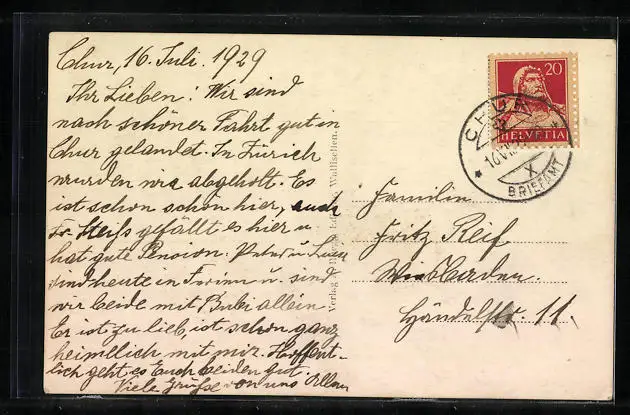 Chur, 16. Juli. 1929
Ihr Lieben! Wir sind
nach schöner Fahrt gut in
Chur gelandet. In Zürich
wurden wir abgeholt. Es
ist schon schön hier, auch
gefällt es hier u
hat gute Pension. Peter u
sind heute in u. sind
wir beide mit Bubi allein
Er ist zu lieb, ist schon ganz
heimtlich mit mir. Hoffent-
lich geht es Euch beiden gut.
Viele Grüsse von uns Allen
Verlag Wallisellen.
20
HELVETIA
CHUR
BRIEFAMT
X
Familie
Fritz Reif
Wiesbaden.
Händelstr. 11.